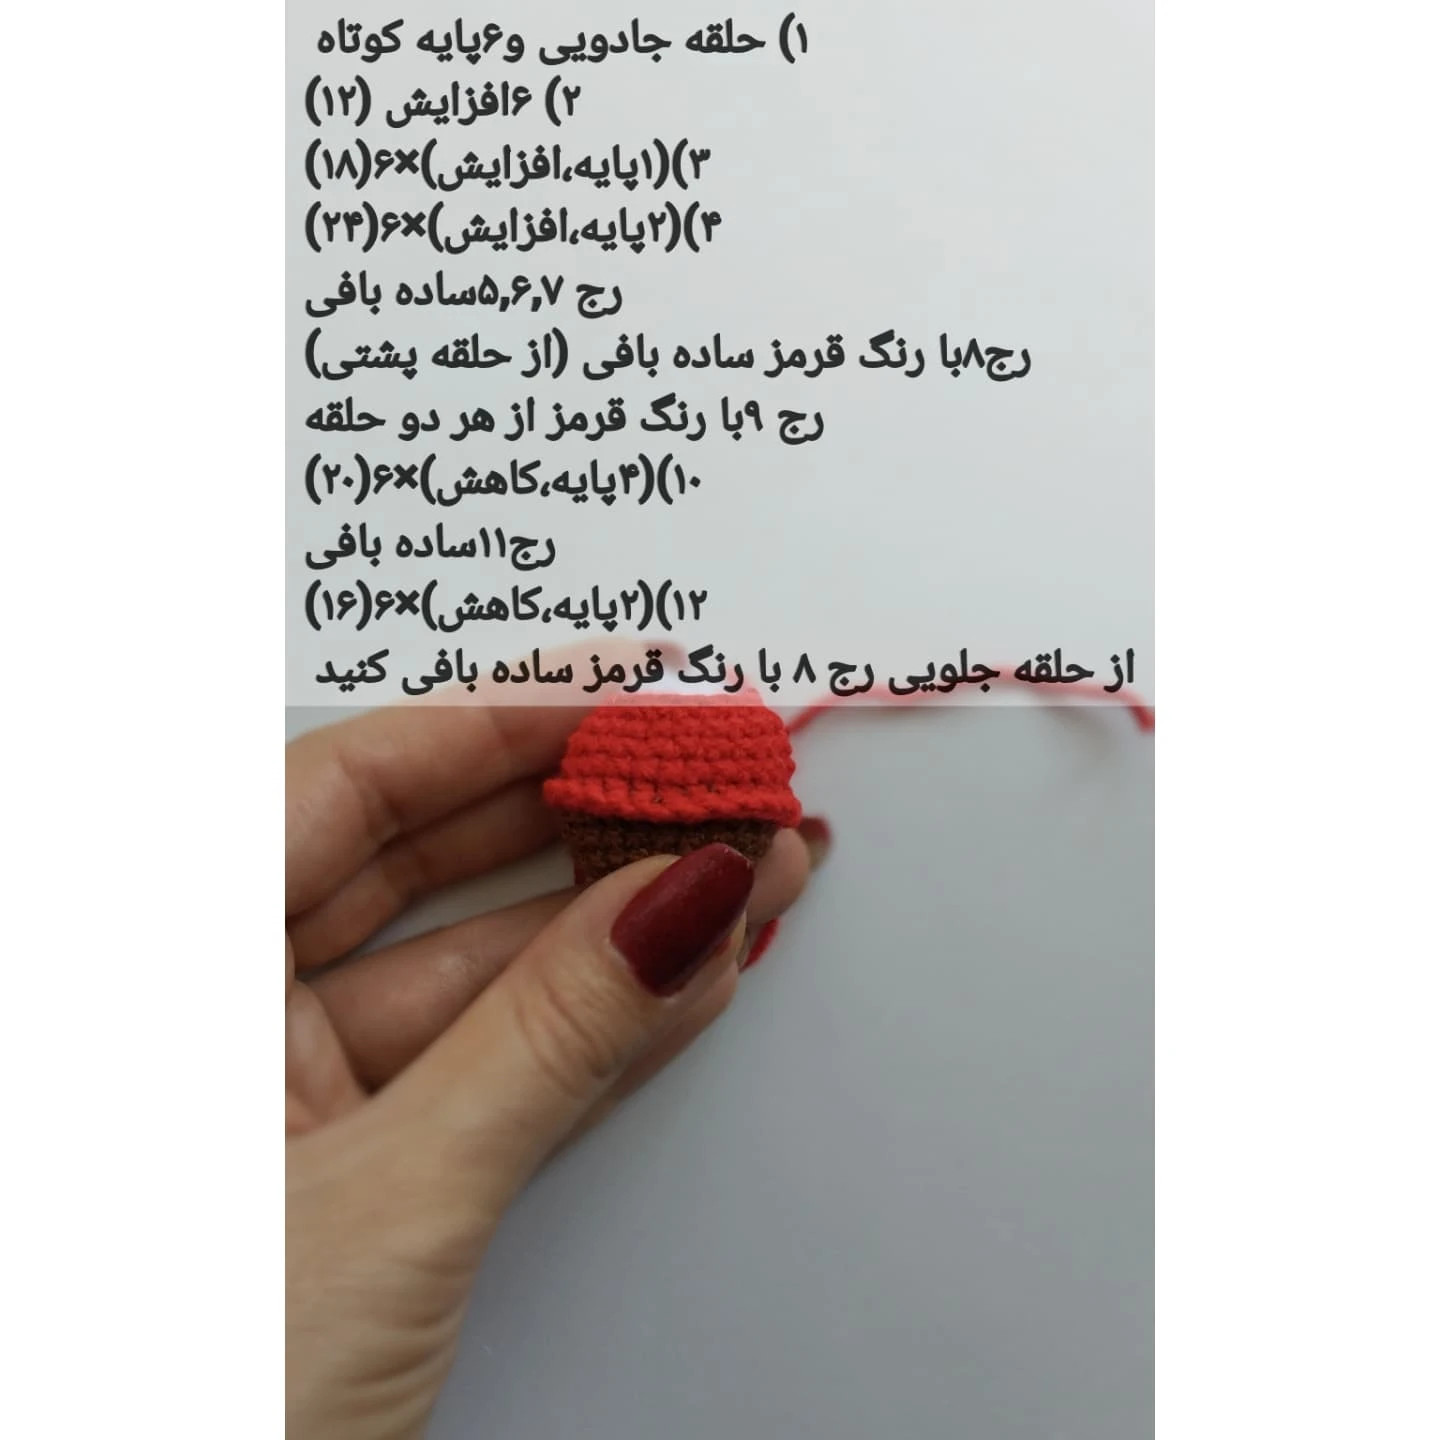 ۱) حلقه جادویی و۶پایه کوتاه
۲) ۶افزایش (۱۲)
۳)(۱پایه،افزایش)×۶(۱۸)
۴)(۲پایه،افزایش)×۶(۲۴)
رج ۵,۶,۷ساده بافی
رج۸با رنگ قرمز ساده بافی (از حلقه پشتی)
رج ۹با رنگ قرمز از هر دو حلقه
۱۰)(۴پایه،کاهش)×۶(۲۰)
رج۱۱ساده بافی
۱۲)(۲پایه،کاهش)×۶(۱۶)
از حلقه جلویی رج ۸ با رنگ قرمز ساده بافی کنید